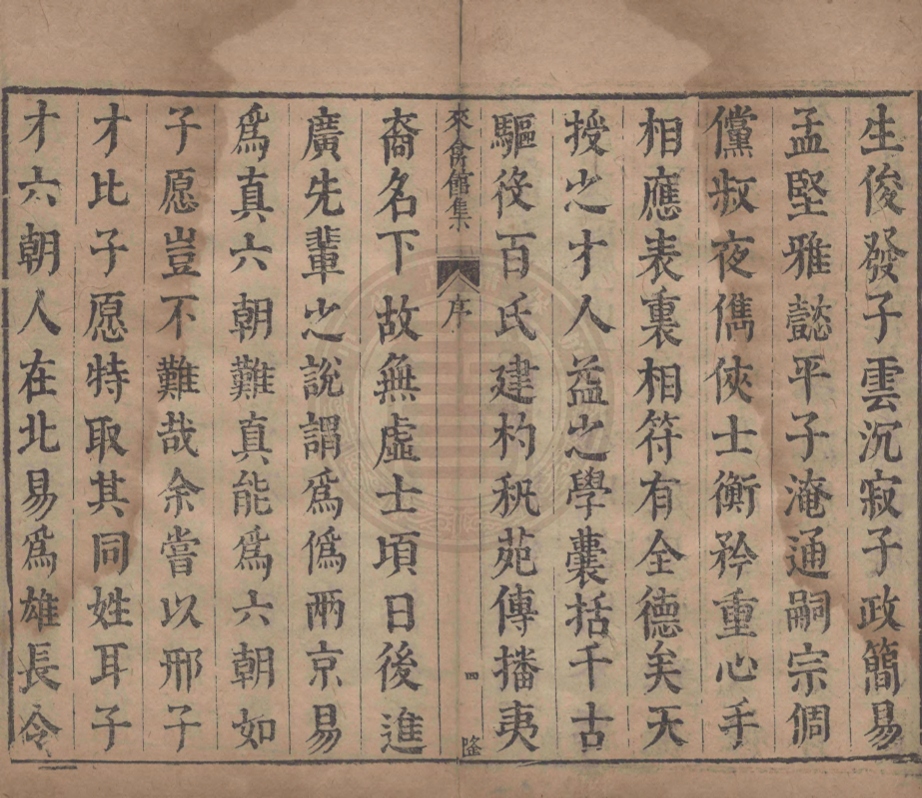 生俊發子雲沉寂子政簡易
孟堅雅懿平子淹通嗣宗倜
儻叔夜儁俠士衡矜重心手
相應表裏相符有全德矣天
授之才人益之學囊括千古
驅役百氏建杓秇苑傳播夷
來禽館集 序 四 隆
裔名下故無虛士頃日後進
廣先輩之說謂爲僞兩京易
爲真六朝難真能爲六朝如
子愿豈不難哉余嘗以邢子
才比子愿特取其同姓耳子
才六朝人在北易爲雄長令